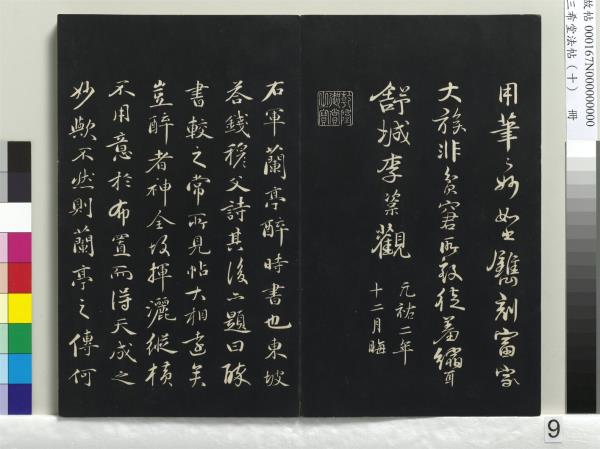 故帖 000167N000000000
三希堂法帖（十） 冊
用筆之妙如鐫刻富家
大族非貧窘所敢徒蓄縮耳
舒城李楶觀
元祐二年
十二月晦
右軍蘭亭醉時書也東坡
答錢穆父詩其後亦題曰醉
書較之常所見帖大相遠矣
豈醉者神全故揮灑縱橫
不用意於布置而得天成之
妙歟不然則蘭亭之傳何
9